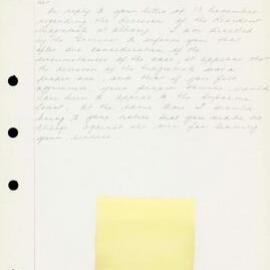 Sir
In reply to your letter of 13 December
regarding the decision of the Resident
Magistrate at Albany I am directed
by the Governor to inform you that
after due consideration of the
circumstances of the case, it appears that
the decision of the Magistrate was a
proper one, and that if you felt
aggrieved, your proper course would
have been to appeal to the Supreme
Court. At the same time I would
bring to your notice that you made no
charge against the man for leaving
your service